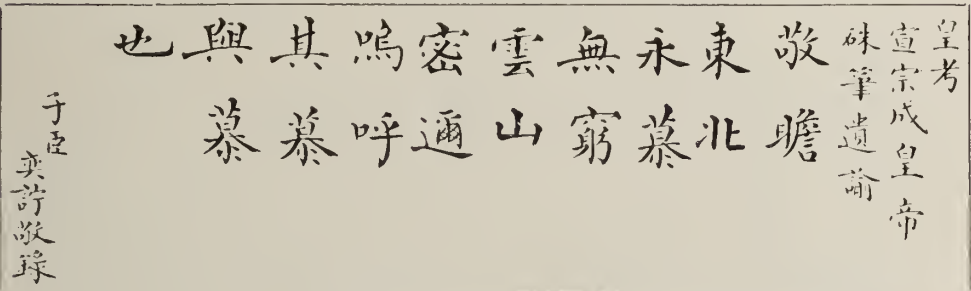 皇考
宣宗成皇帝
硃筆遺諭
敬瞻
東北
永慕
無窮
雲山
密邇
嗚呼
其慕
與慕
也
子臣
奕訢敬錄